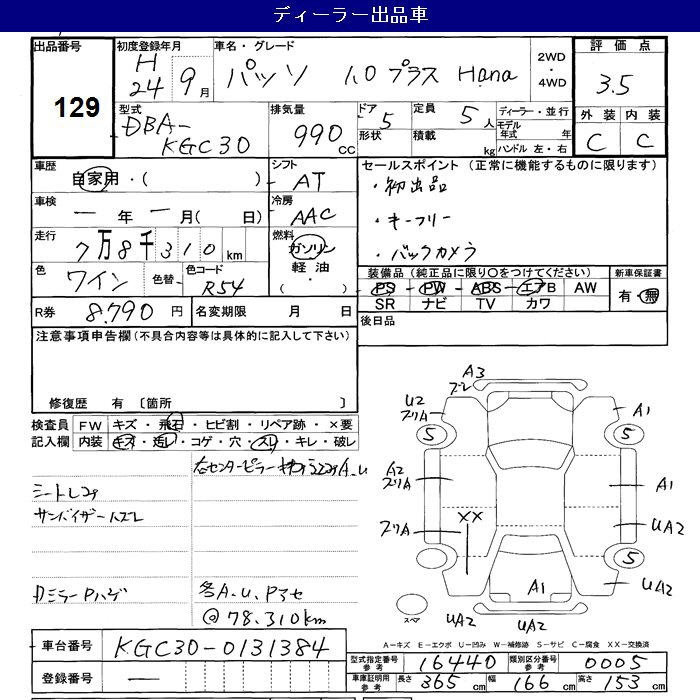 ディーラー出品車
出品番号 129
初度登録年月 H24 9月
車名・グレード パッソ 1.0プラス Hana
2WD・4WD
評価点 3.5
外装 C 内装 C
型式 DBA-KGC30
排気量 990 CC
ドア 5 形状
定員 5人 積載 kg
ディーラー・並行
モデル年式 年
ハンドル 左・右
車歴 自家用・( )
シフト AT
車検 ー年ー月( 日)
冷房 AAC
走行 7万8千310km
燃料 ガソリン 軽油・( )
色 ワイン 色替
色コード R54
セールスポイント (正常に機能するものに限ります)
・初出品
・キーフリー
・バックカメラ
装備品(純正品に限り○をつけてください)
PS PW ABS エアB AW
SR ナビ TV カワ
新車保証書 有・無
R券 8.790円
名変期限 月 日
後日品
注意事項申告欄(不具合内容等は具体的に記入して下さい)
修復歴 有 〔箇所 〕
検査員記入欄
FW キズ・飛石・ヒビ割・リペア跡・×要
内装 キズ・汚レ・コゲ・穴・スレ・キレ・破レ
右センターピラー A.U
サンバイザーハズレ
カミラーPハゲ
各A.U.Pアセ
@78.310km
A3
ブレ
U2
ブリA
5
A1
5
A2
ブリA
A1
ブリA
XX
UA2
5
A1
UA2
スペア
UA2
UA2
A-キズ E-エクボ U-凹み W-補修跡 S-サビ C-腐食 XX-交換済
車台番号 KGC30-0131384
登録番号 ー
型式指定番号 参考 16440
類別区分番号 参考 0005
車庫証明用 参考 長さ 365cm 幅 166cm 高さ 153cm